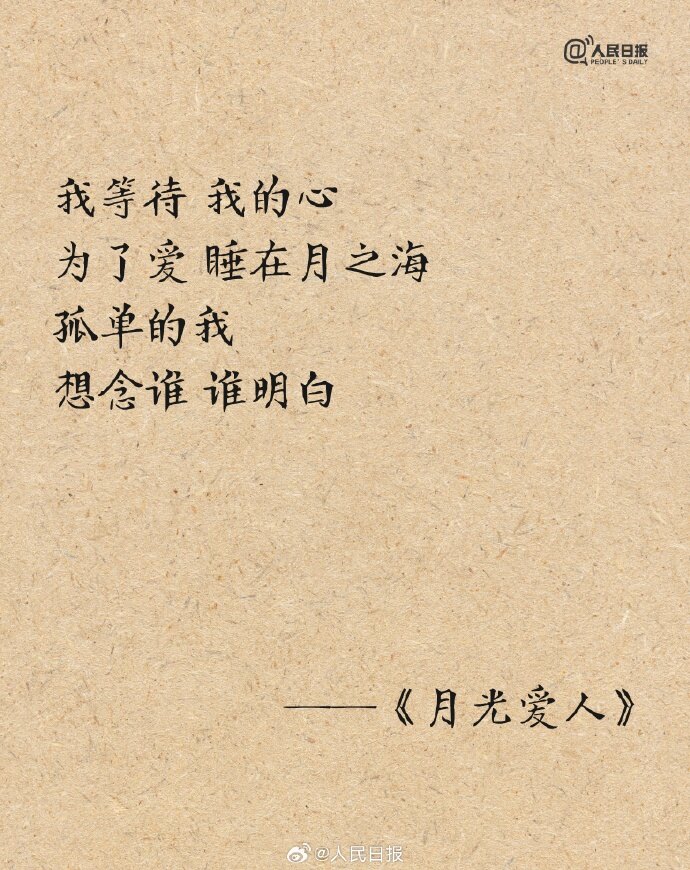 @人民日报
PEOPLE'S DAILY
我等待 我的心
为了爱 睡在月之海
孤单的我
想念谁 谁明白
——《月光爱人》
@人民日报